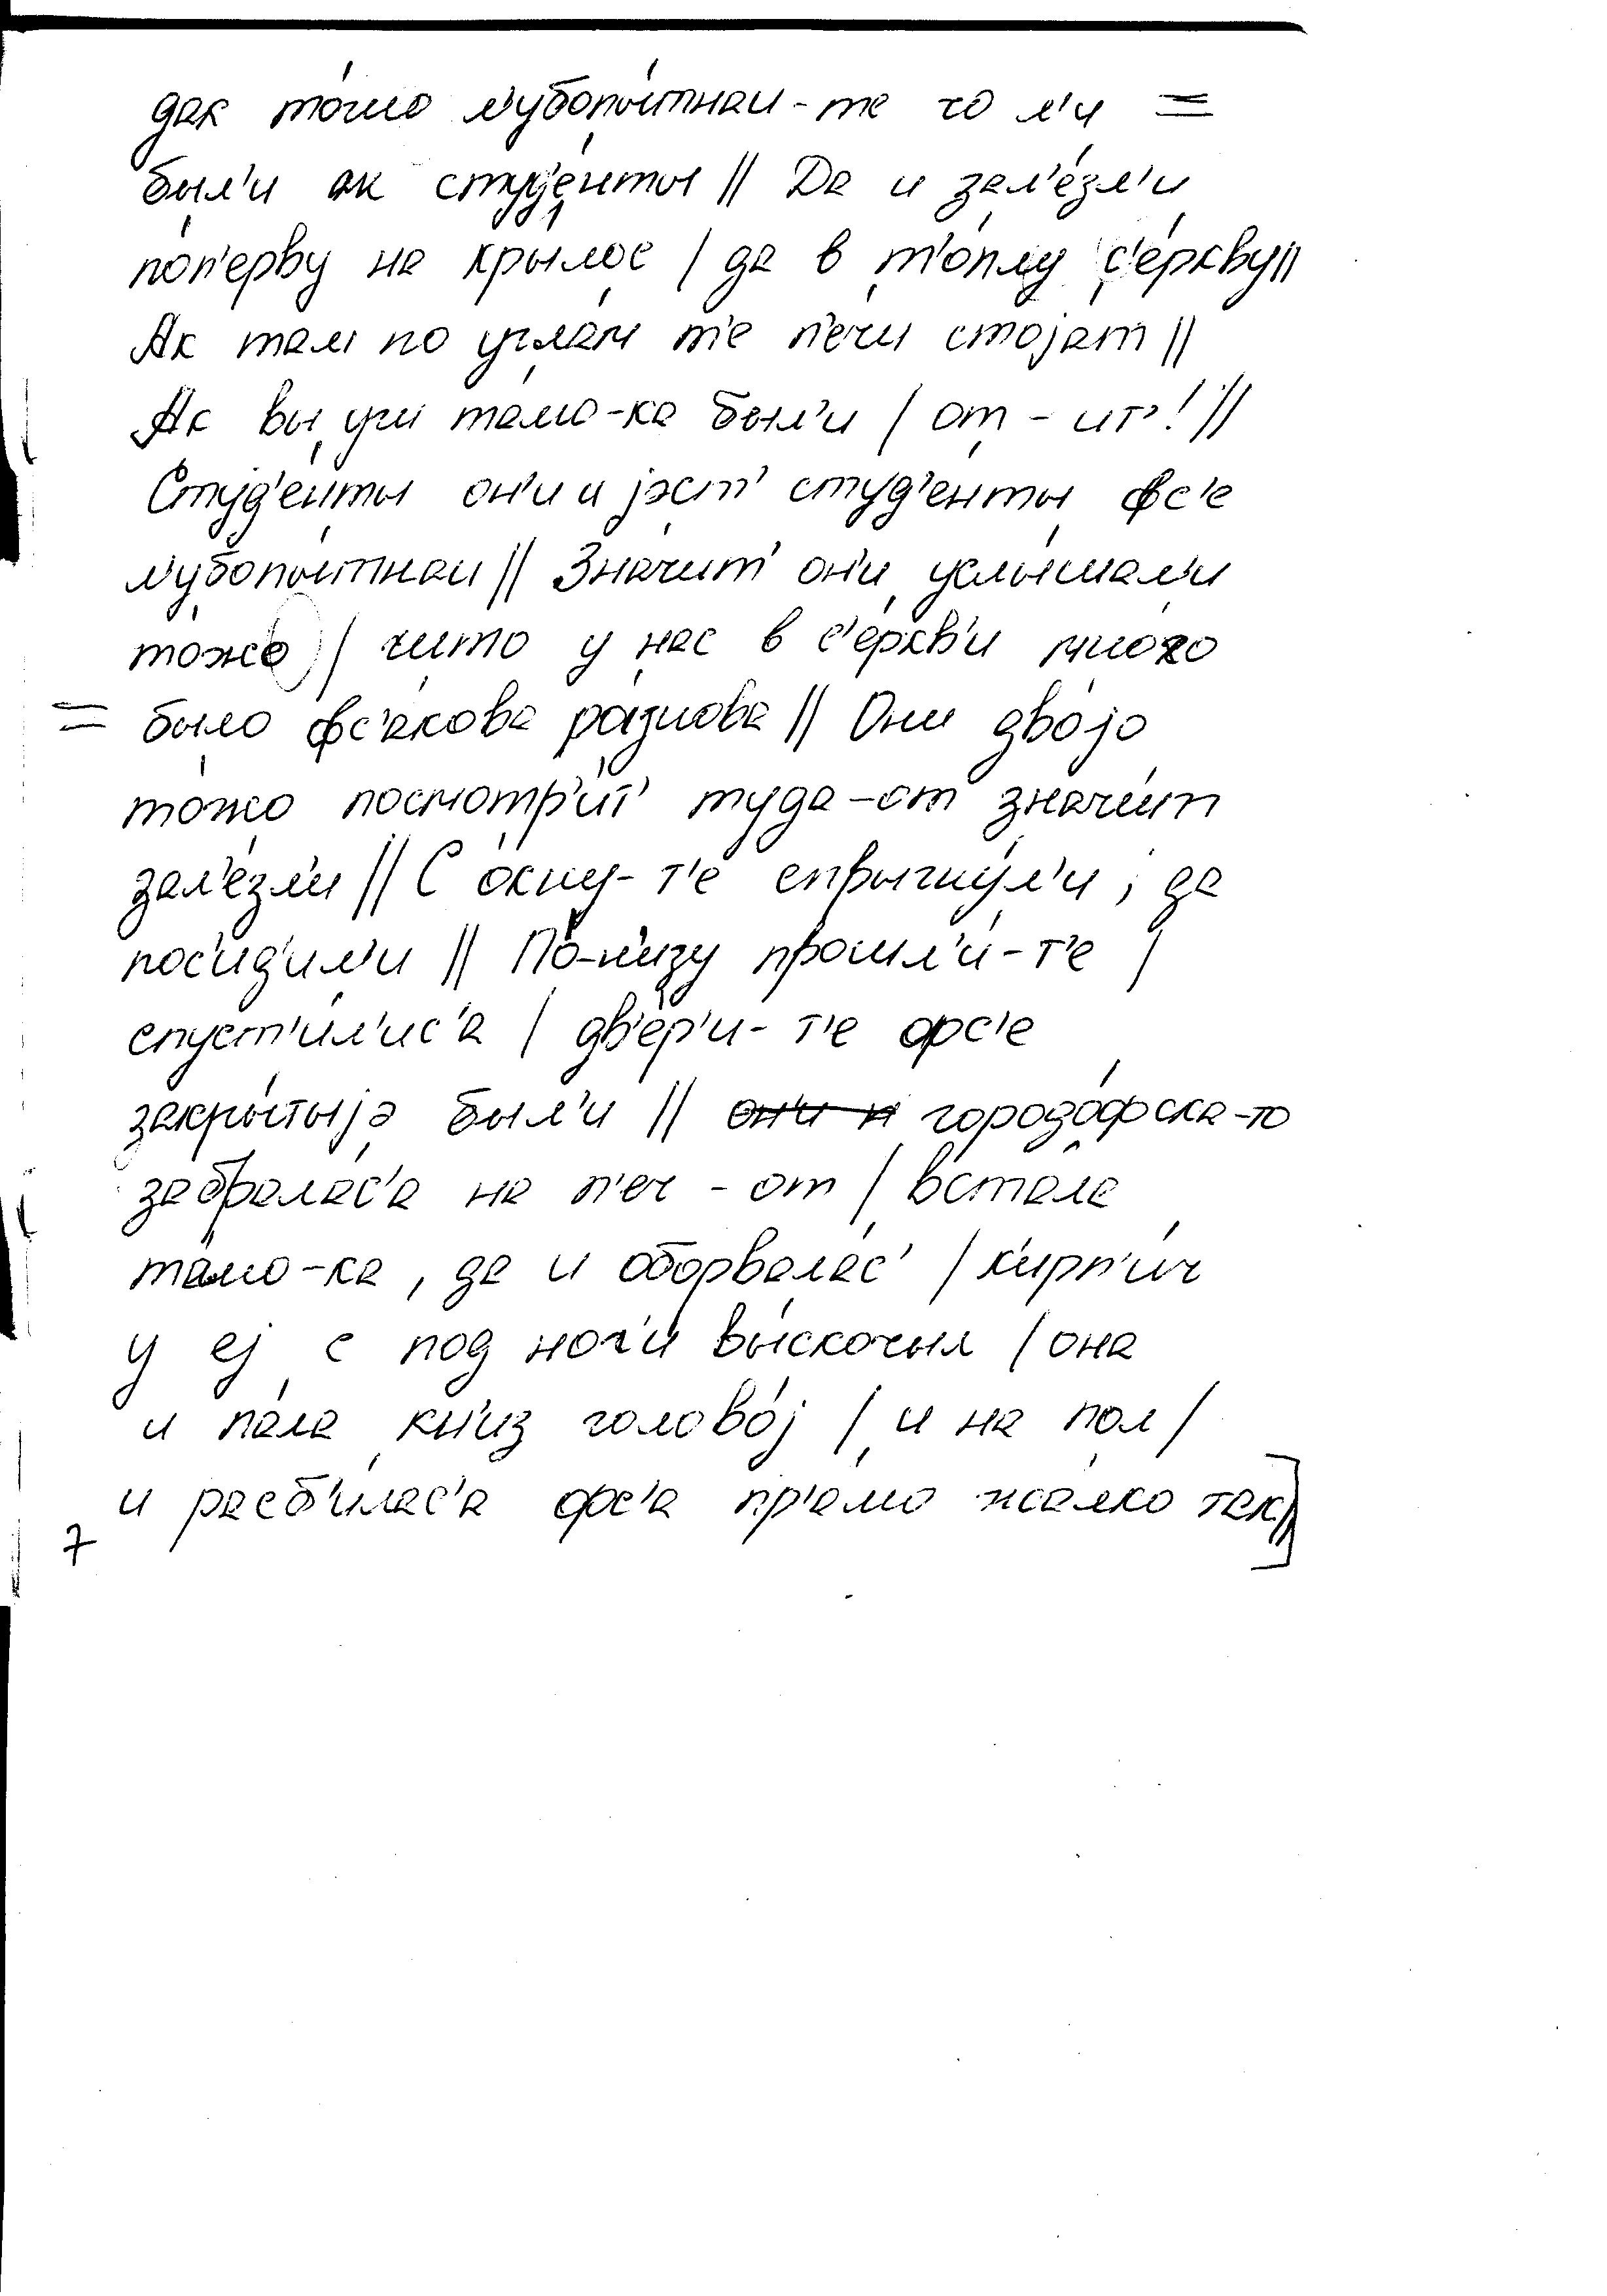 дак то́чно л'убопы́тнаи-те чо л'и =
был'и ак студ'е́нты || Да и зал'е́зл'и
по́п'ерву на крылос | да в т'о́плу с'е́ркву ||
Ак там по угла́м т'е п'ечи стоjат ||
Ак вы уш тамо-ка был'и | от - ит'! ||
Студ'е́нты он'и и jэст' студ'е́нты фс'е
л'убопы́тнаи || Значит он'и услы́шал'и
то́жо | чито у нас в с'е́ркв'и мно́го
= было фс'акова ра́знова || Они дво́jо
то́жо посмотр'и́т' туда-от значи́т
зал'е́зл'и || С о́кну-т'е спрыгну́л'и, да
пос'ид'ил'и || По́-н'изу прошл'и́-т'е |
спуст'и́л'ис'а | дв'е́р'и-т'е фс'е
закры́тыjэ был'и || ~~он'и н~~ городо́фска-то
забрала́с'а на п'еч-от | встала
та́мо-ка, да и оборвалас' | к'ирп'и́ч
у еj с под ног'и́ вы́скочил | она
и па́ла кн'из голово́j | и на пол |
и расб'и́лас'а фс'а пр'а́мо жа́лко так ||]
7